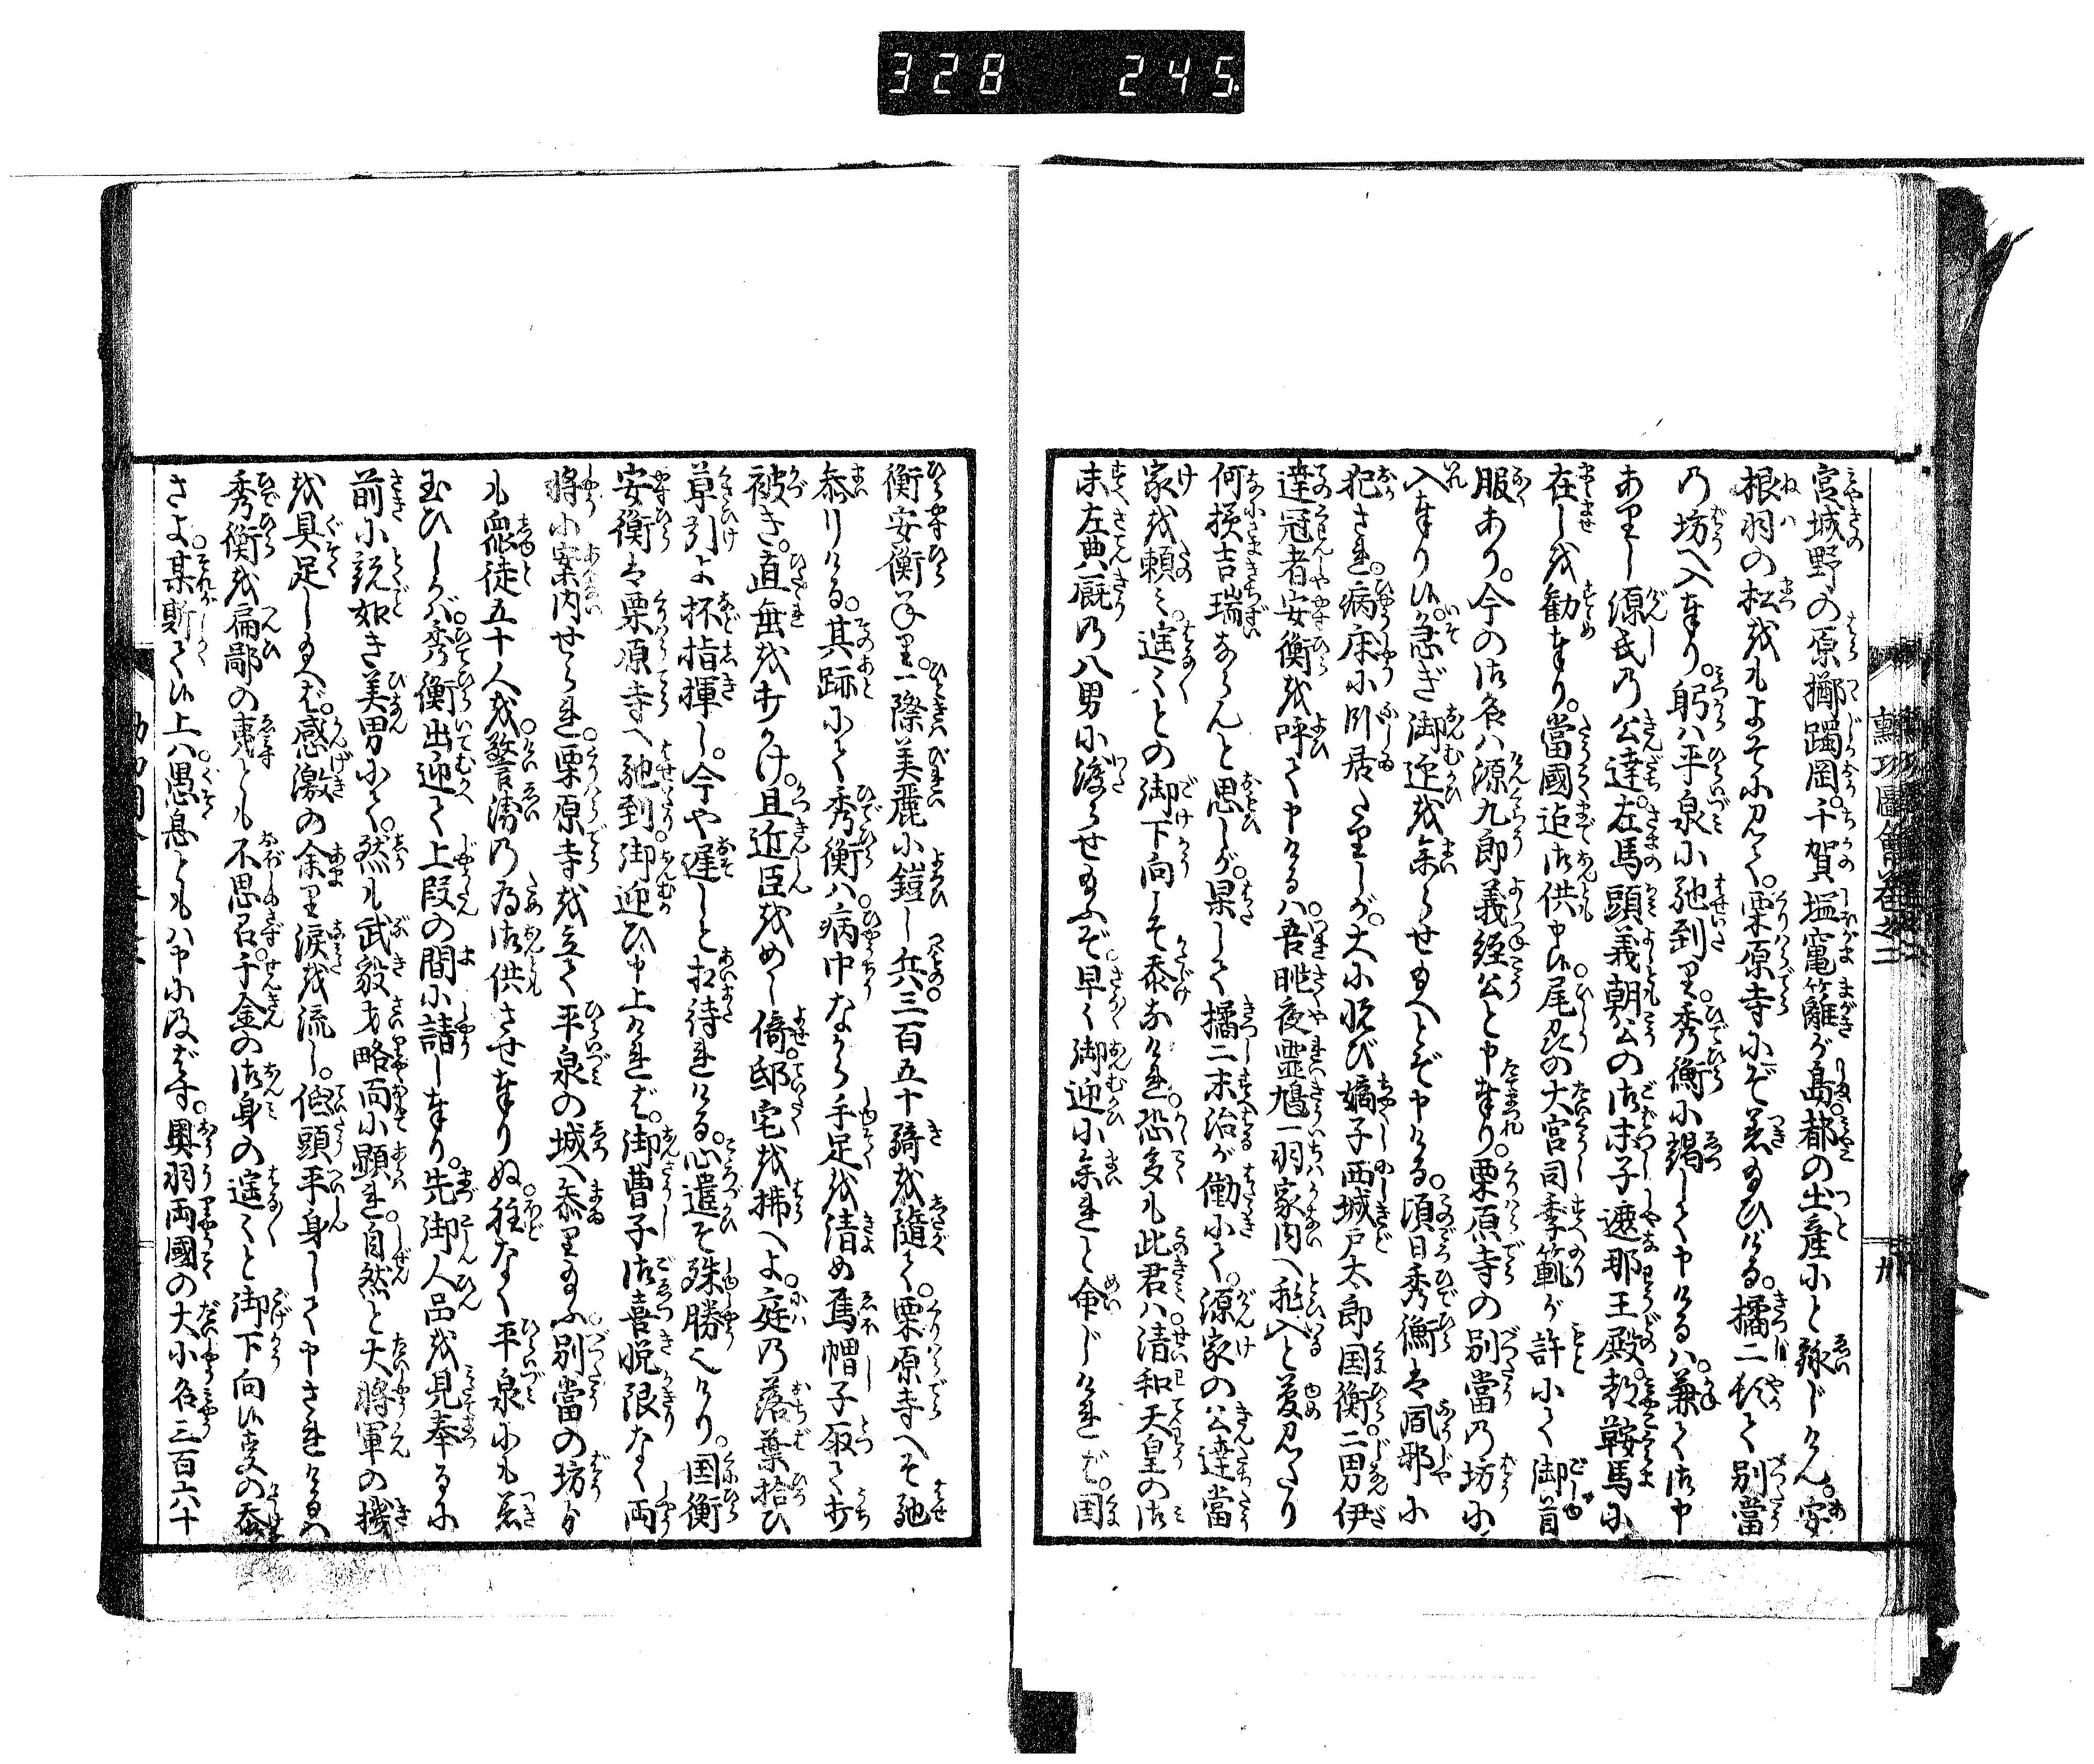 328 245
勲功圖會 巻之二
宮城野の原。躑躅岡。千賀塩竈籬が島都の土産にと詠じけん。安
根羽の松をもよそに見て。栗原寺にぞ着給ひける。橘二頓て別當
の坊へ入奉り。躬ハ平泉に馳到り。秀衡に謁して申けるハ。兼て御申
ありし源氏の公達。左馬頭義朝公の御末子遮那王殿。都鞍馬に
在しを勧奉り。當國迄御供申候。尾張の大宮司季範が許にて御首
服あり。今の御名ハ源九郎義経公と申奉り。栗原寺の別當の坊に
入奉り候。急ぎ御迎を参らせ給へとぞ申ける。頃日秀衡ハ風邪に
犯され。病床に臥居たりしが。大に悦び嫡子西城戸太郎国衡。二男伊
達冠者安衡を呼て申けるハ。吾昨夜霊鳩一羽家内へ飛入と夢見たり
何様吉瑞ならんと思しが。果して橘二末治が働にて。源家の公達當
家を頼み。遥々との御下向こそ忝なけれ。恐多も此君ハ。清和天皇の御
末左典厩の八男に渡らせ給ふぞ。早く御迎に参れと命じければ。国
衡安衡承り。一際美麗に鎧し兵三百五十騎を随て。栗原寺へぞ馳
参りける。其跡にて秀衡ハ。病中ながら手足を清め烏帽子取て打
被き。直垂をかけ。且近臣をめし倚。邸宅を拂へよ。庭の落葉拾ひ
草引よ抔指揮し。今や遅しと相待れける。心遣こそ殊勝也けり。国衡
安衡ハ栗原寺へ馳到。御迎ひ申上ければ。御曹子御喜悦限なく両
将に案内せられ。栗原寺を立て平泉の城へ参り給ふ。別當の坊から
も衆徒五十人を。警衛の為御供させ奉りぬ。程なく平泉にも着
玉ひしかバ。秀衡出迎て上段の間に請し奉り。先御人品を見奉るに
前に説如き美男にて。然も武毅才略面に顕れ。自然と大将軍の機
を具足し給へば。感激の余り涙を流し。低頭平身して申されけるハ
秀衡を扁鄙の夷とも不思召。千金の御身の遥々と御下向候事の忝
さよ。某斯て候上ハ。愚息ともハ申に及ばず。奥羽両國の大小名三百六十